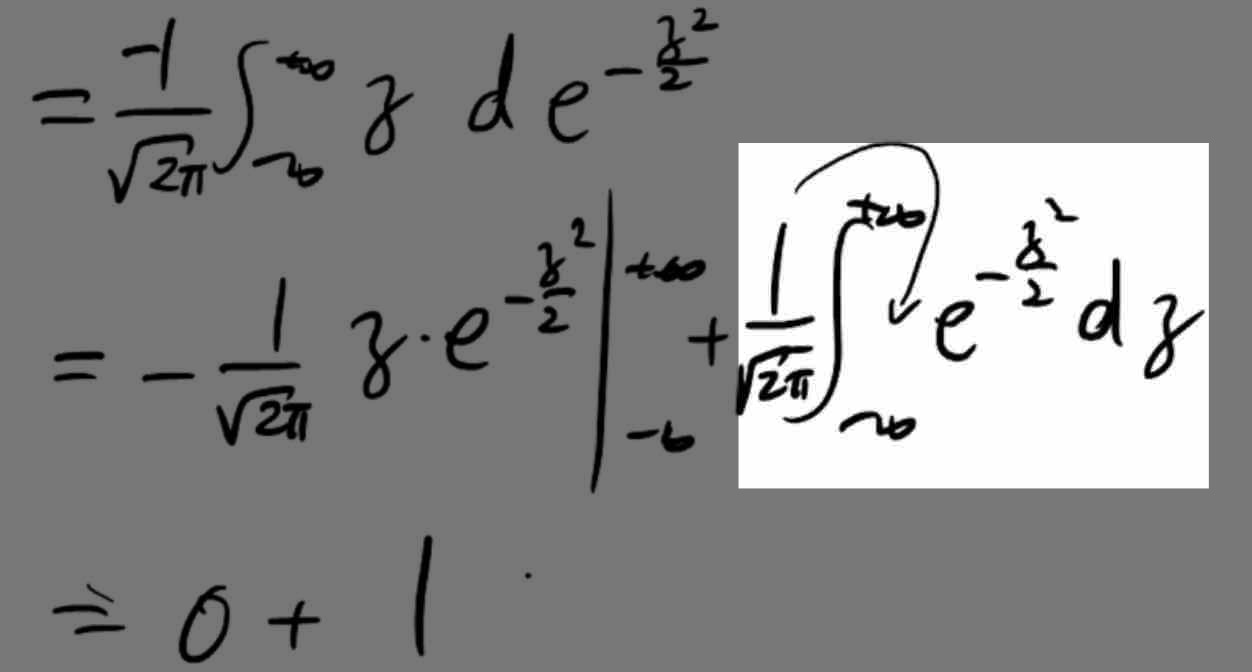 = -1/√2π ∫_{-∞}^{+∞} z d e^{-z²/2}
= - 1/√2π z · e^{-z²/2} |_{-∞}^{+∞} + 1/√2π ∫_{-∞}^{+∞} e^{-z²/2} d z
= 0 + 1